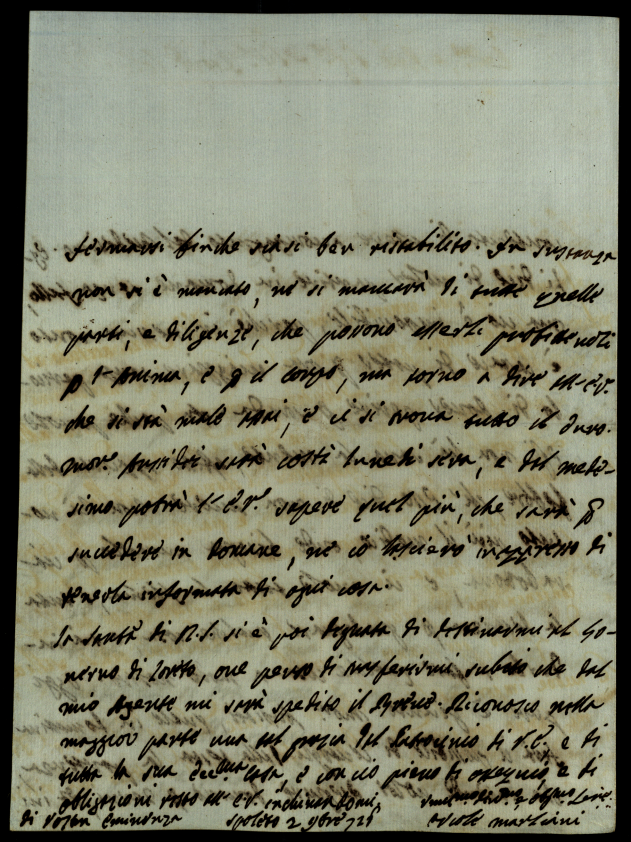 fermarsi finche siasi ben ristabilito. In sustanza
non si è mancato, ne si mancarà di tutte quelle
parti, e diligenze, che possono esserli
p l'anima, e p il corpo, ma torno a dire all'E.V.
che si stà male assai, e ci si trova tutto il duro.
Mons.r sarà costà lunedi sera, e dal mede-
simo potrà l'E.V. sapere quel più, che sarà p
succedere in domane, ne io lascierò inappresso di
tenerla informata di ogni cosa.
La Santà di N.S. si è poi degnata di destinarmi al Go-
verno di Loreto, ove penso di trasferirmi subito che dal
mio Agente mi sarà spedito il Breve. Riconosco nella
maggior parte una tal grazia dal Patrocinio di V.E., e di
tutta la sua Ecc.ma Casa, e con ciò pieno di ossequio, e di
obligazioni resto all'E.V. inchinandomi,
di Vostra Eminenza Spoleto 2 9bre 721
Ercole